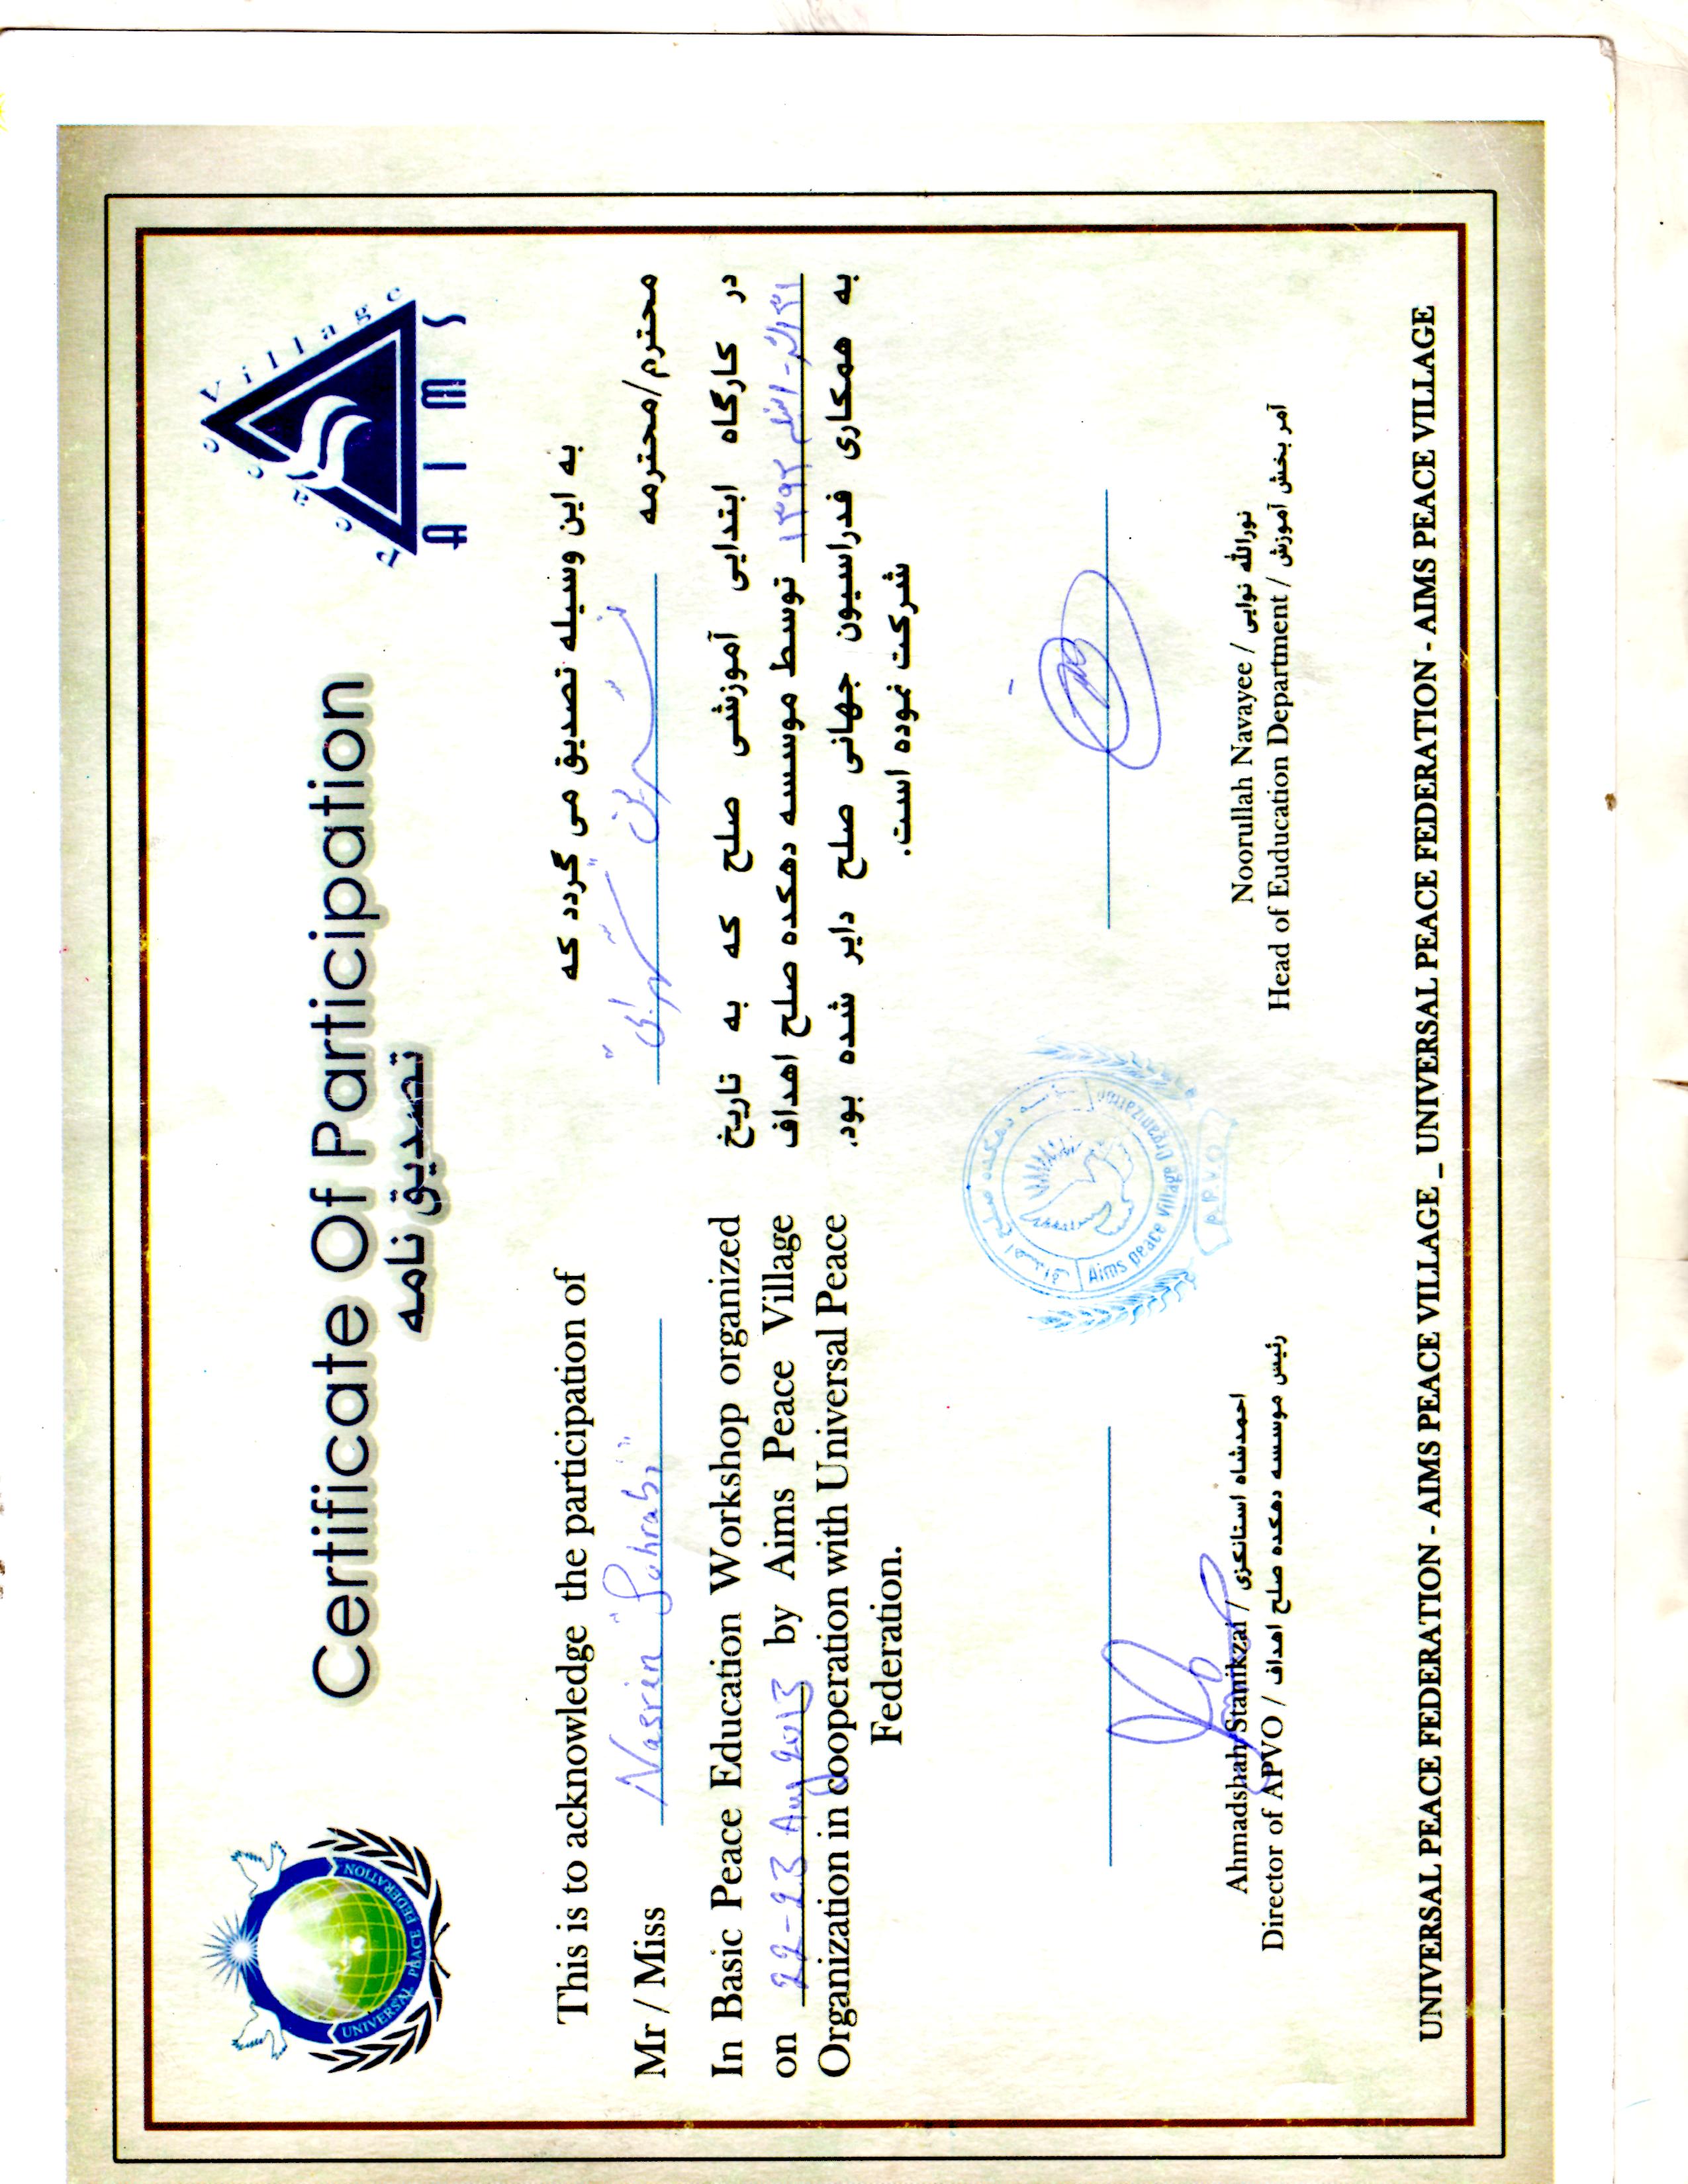 Certificate Of Participation
تصدیق نامه
UNIVERSAL PEACE FEDERATION
Peace Village
AIMS
This is to acknowledge the participation of
Mr / Miss Nasrin "Suhrabi"
In Basic Peace Education Workshop organized
on 22-23 Aug 2013 by Aims Peace Village
Organization in cooperation with Universal Peace
Federation.
به این وسیله تصدیق می گردد که
محترم/محترمه نسرین "سهرابی"
در کارگاه ابتدایی آموزشی صلح که به تاریخ
۱۳۹۲ توسط موسسه دهکده صلح اهداف
به همکاری فدراسیون جهانی صلح دایر شده بود،
شرکت نموده است.
موسسه دهکده صلح اهداف
Aims peace Village Organization
A.P.V.O
Ahmadshah Stanikzai / احمدشاه استانکزی
Director of APVO / رئیس موسسه دهکده صلح اهداف
Noorullah Navayee / نورالله نوایی
Head of Euducation Department / آمر بخش آموزش
UNIVERSAL PEACE FEDERATION - AIMS PEACE VILLAGE _ UNIVERSAL PEACE FEDERATION - AIMS PEACE VILLAGE